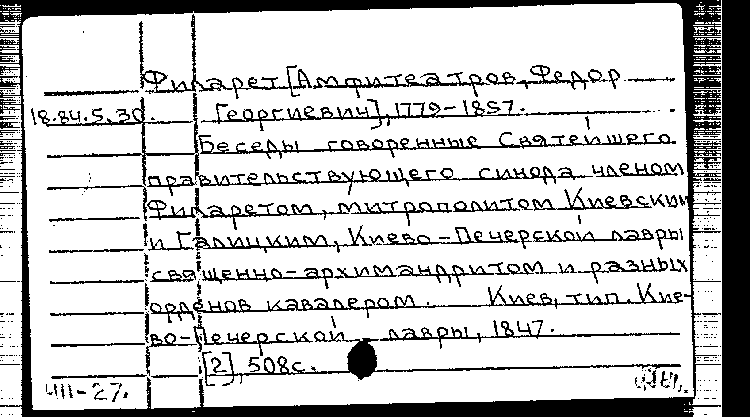 Филарет [Амфитеатров, Федор
18.84.5.30. Георгиевич], 1779-1857.
Беседы говоренные Святейшего
правительствующего синода членом
Филаретом, митрополитом Киевским
и Галицким, Киево-Печерской лавры
священно-архимандритом и разных
орденов кавалером. Киев, тип. Кие-
во-Печерской лавры, 1847.
[2], 508с.
ЧП-27.